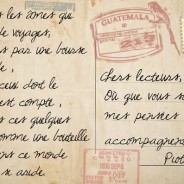 les ânes que
de voyages,
par une bourse
ceux dont le
est compté,
ces quelques
comme une bouteille
ce monde
si aride.
GUATEMALA
Chers lecteurs,
Où que vous s
mes pensées
accompagnen